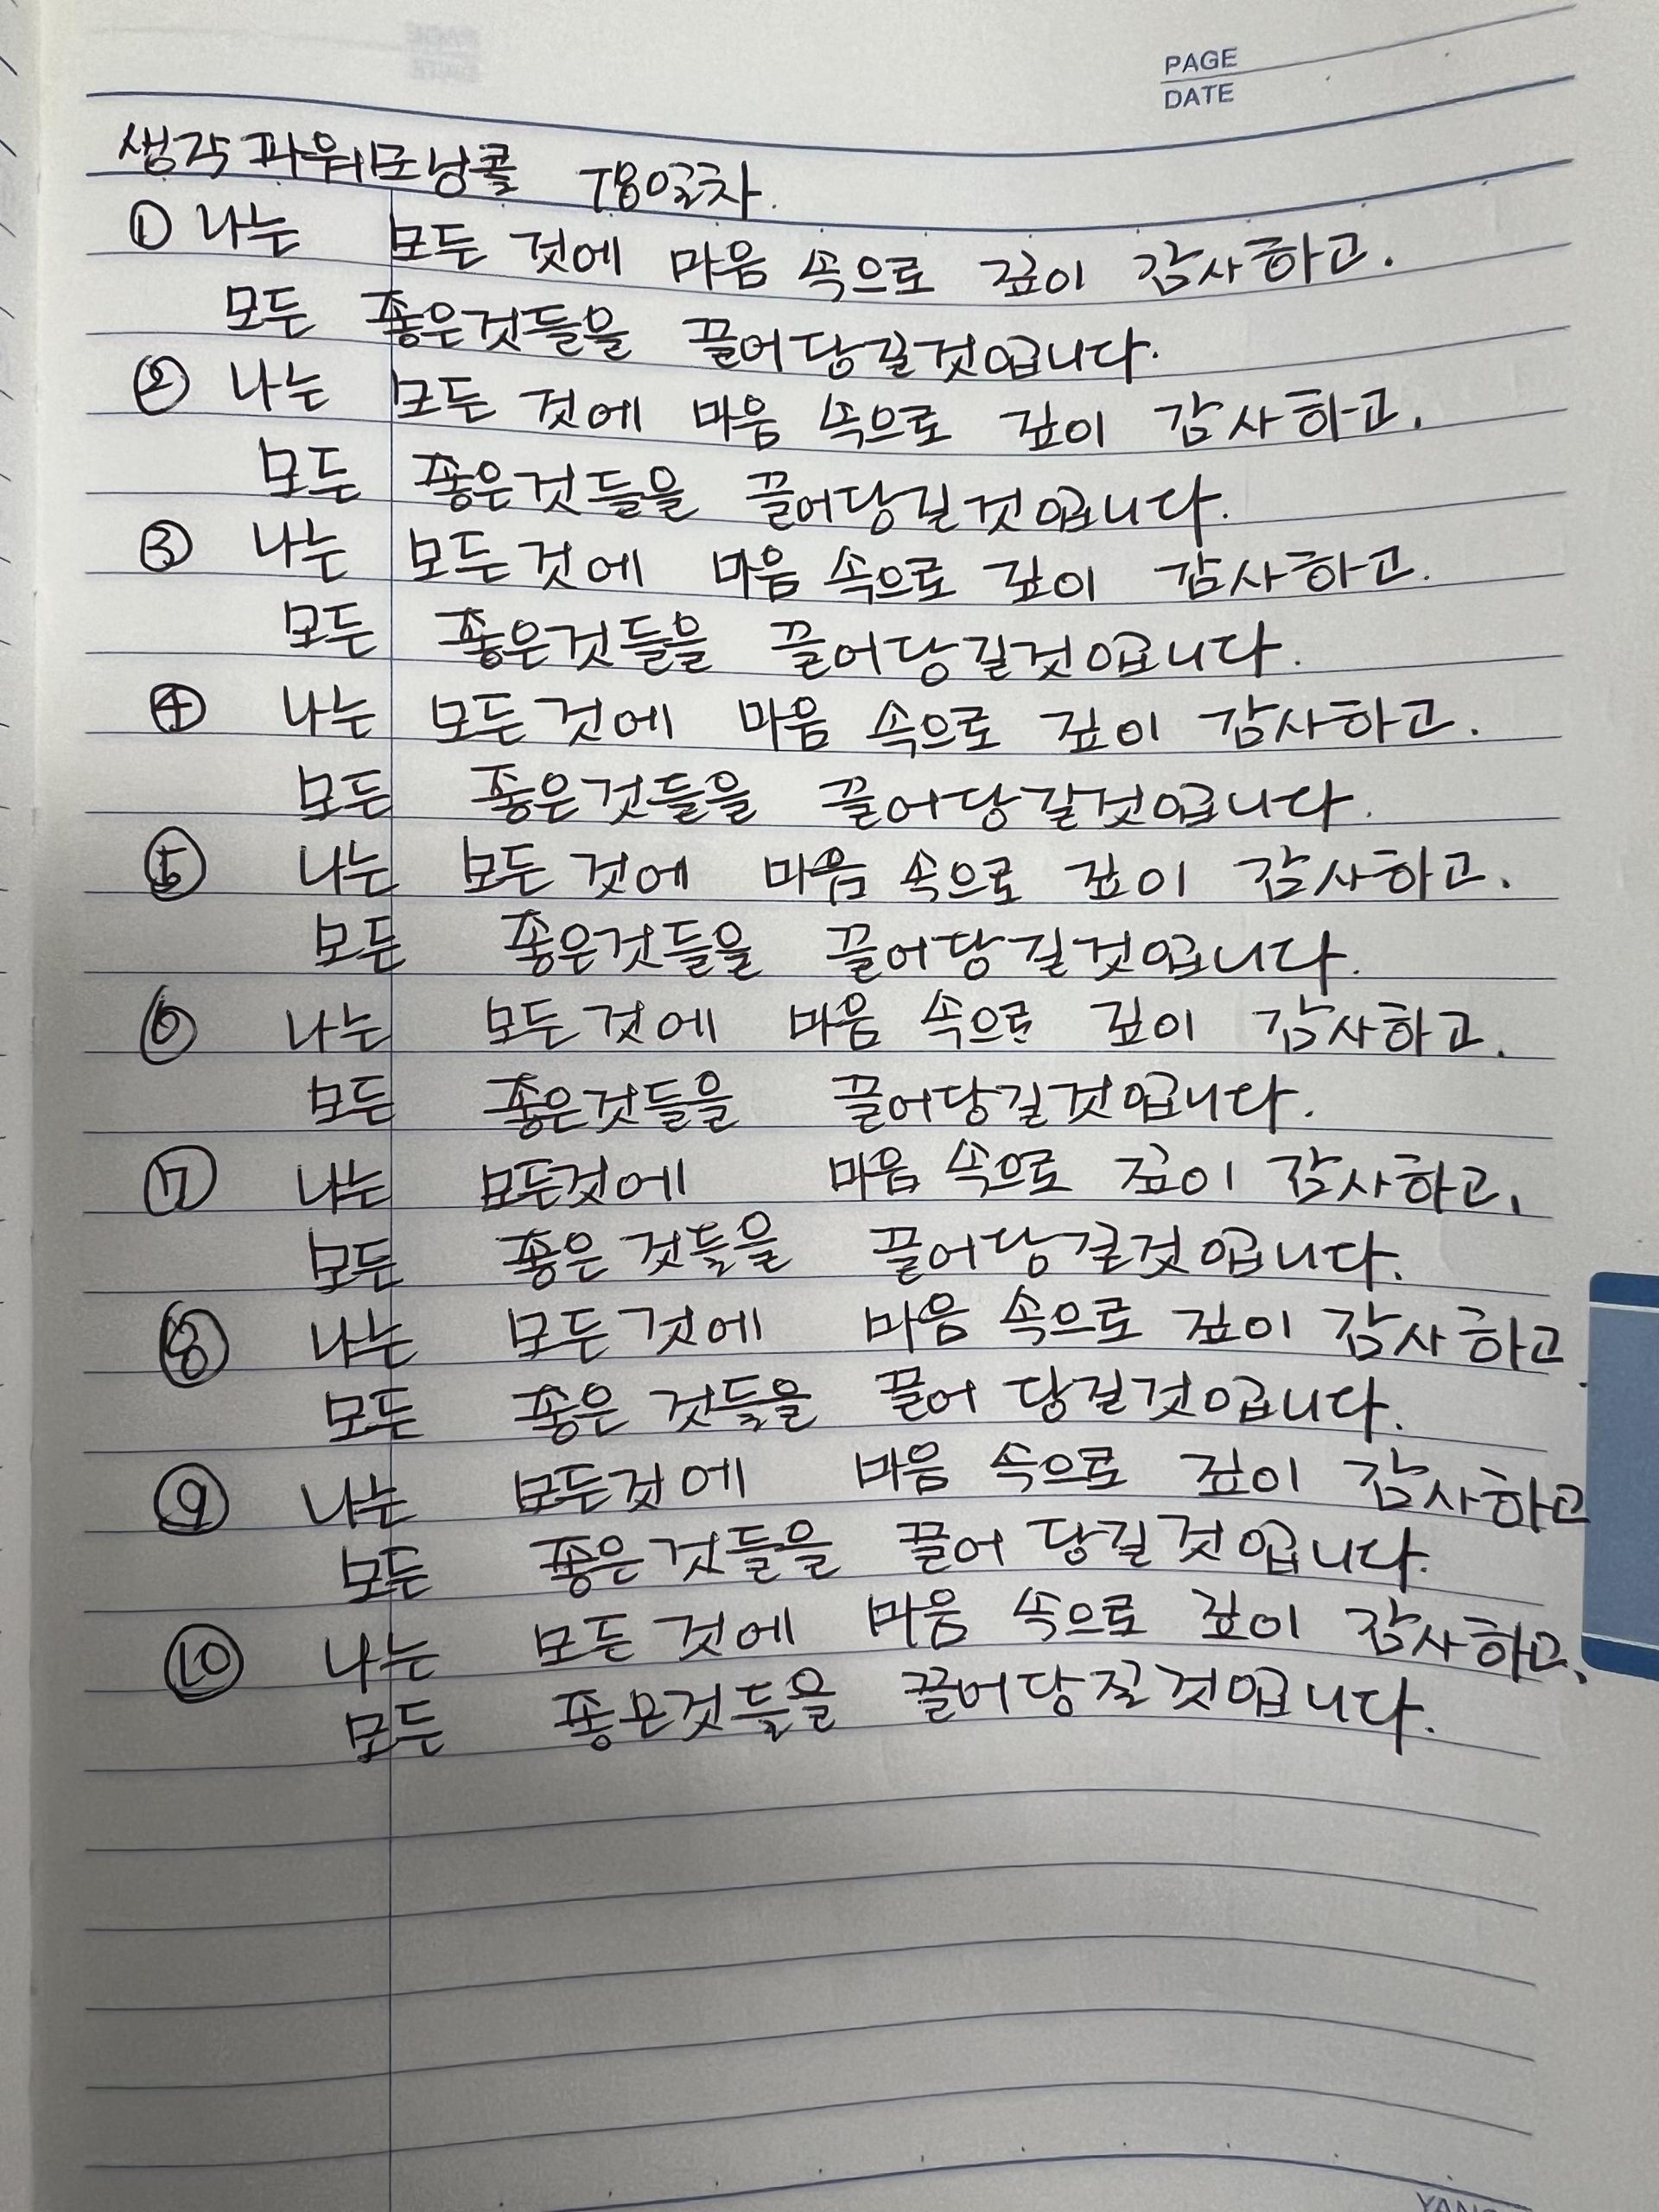 PAGE
DATE
생각파워모닝콜 78일차.
① 나는 모든 것에 마음 속으로 깊이 감사하고.
모든 좋은것들을 끌어당길것입니다.
② 나는 모든 것에 마음 속으로 깊이 감사하고.
모든 좋은것들을 끌어당길것입니다.
③ 나는 모든것에 마음 속으로 깊이 감사하고.
모든 좋은것들을 끌어당길것입니다.
④ 나는 모든것에 마음 속으로 깊이 감사하고.
모든 좋은것들을 끌어당길것입니다.
⑤ 나는 모든 것에 마음 속으로 깊이 감사하고.
모든 좋은것들을 끌어당길것입니다.
⑥ 나는 모든것에 마음 속으로 깊이 감사하고.
모든 좋은것들을 끌어당길것입니다.
⑦ 나는 모든것에 마음 속으로 깊이 감사하고,
모든 좋은 것들을 끌어당길것입니다.
⑧ 나는 모든것에 마음 속으로 깊이 감사하고.
모든 좋은 것들을 끌어 당길것입니다.
⑨ 나는 모든것에 마음 속으로 깊이 감사하고
모든 좋은것들을 끌어 당길것입니다.
⑩ 나는 모든 것에 마음 속으로 깊이 감사하고,
모든 좋은것들을 끌어당길것입니다.